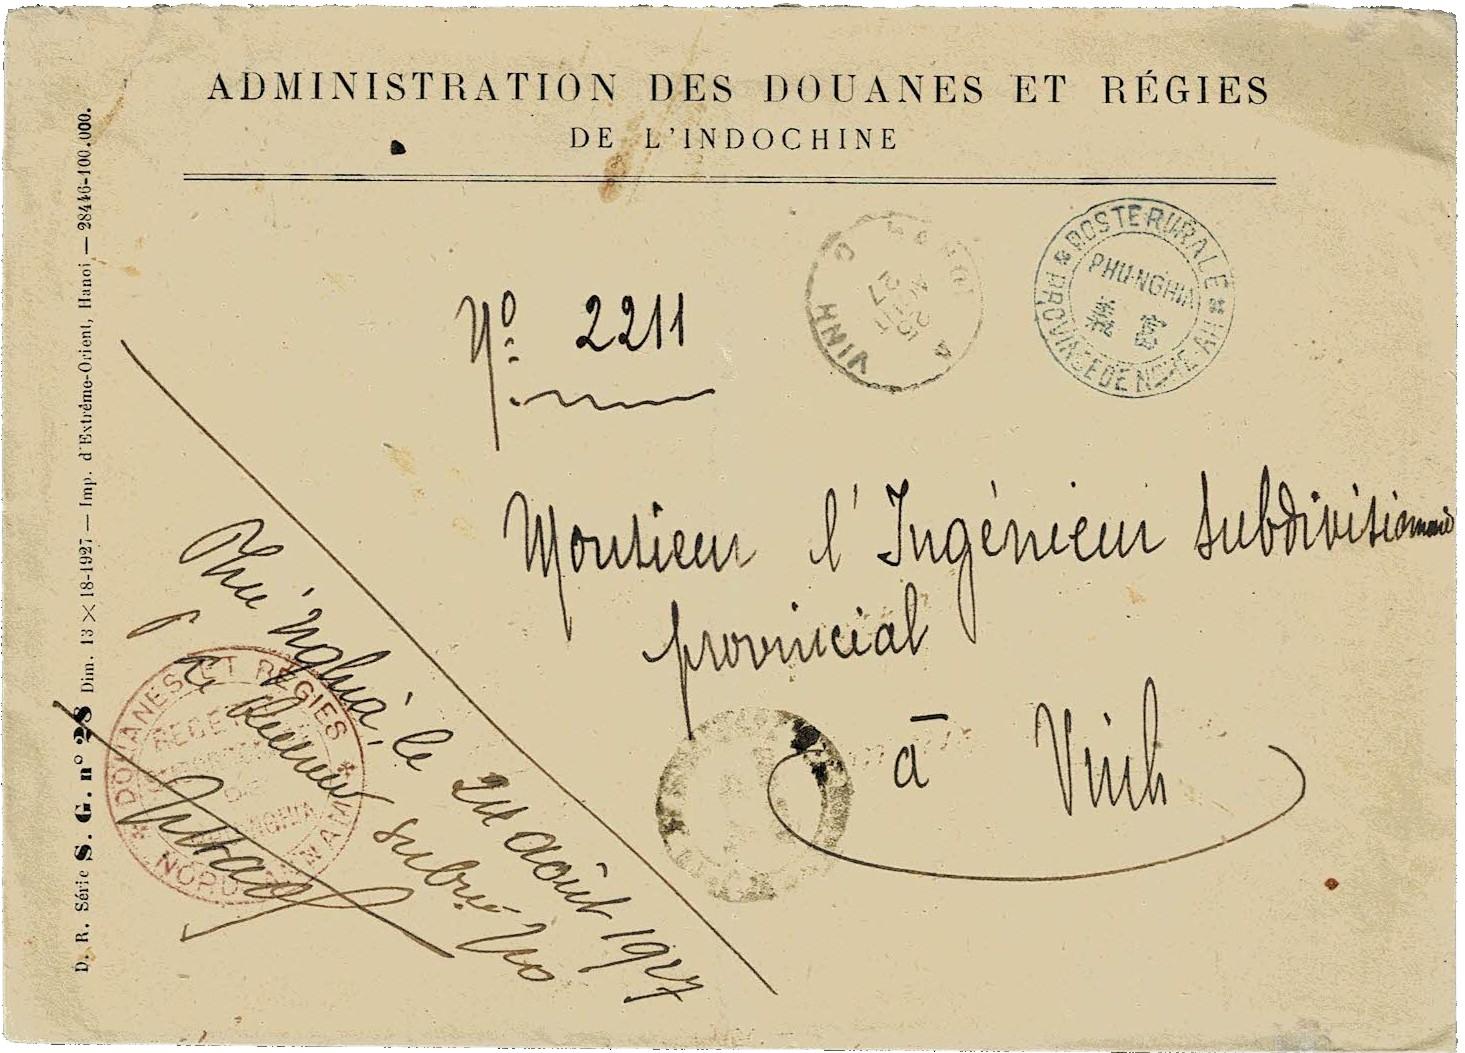 ADMINISTRATION DES DOUANES ET RÉGIES
DE L'INDOCHINE
D. R. Série S. G. n° 28 Dim. 13 × 18-1927 — Imp. d'Extrême-Orient, Hanoi — 28446-100.000.
N° 2211
VINH
POSTE RURALE
PHU-NGHIA
義富
PROVINCE DE NGHE-AN
Monsieur l'Ingénieur subdivisionnaire
provincial
à Vinh
Phu Nghia, le 24 août 1927
DOUANES ET RÉGIES
NORD ANNAM